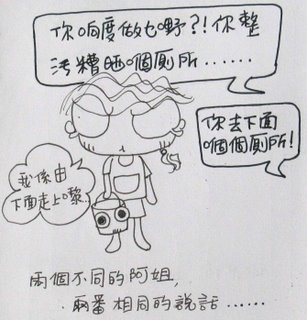 你响度做乜嘢?!你整
污糟晒個厠所……
你去下面
嗰個厠所!
我係由
下面走上嚟…
兩個不同的阿姐,
兩番相同的說話……